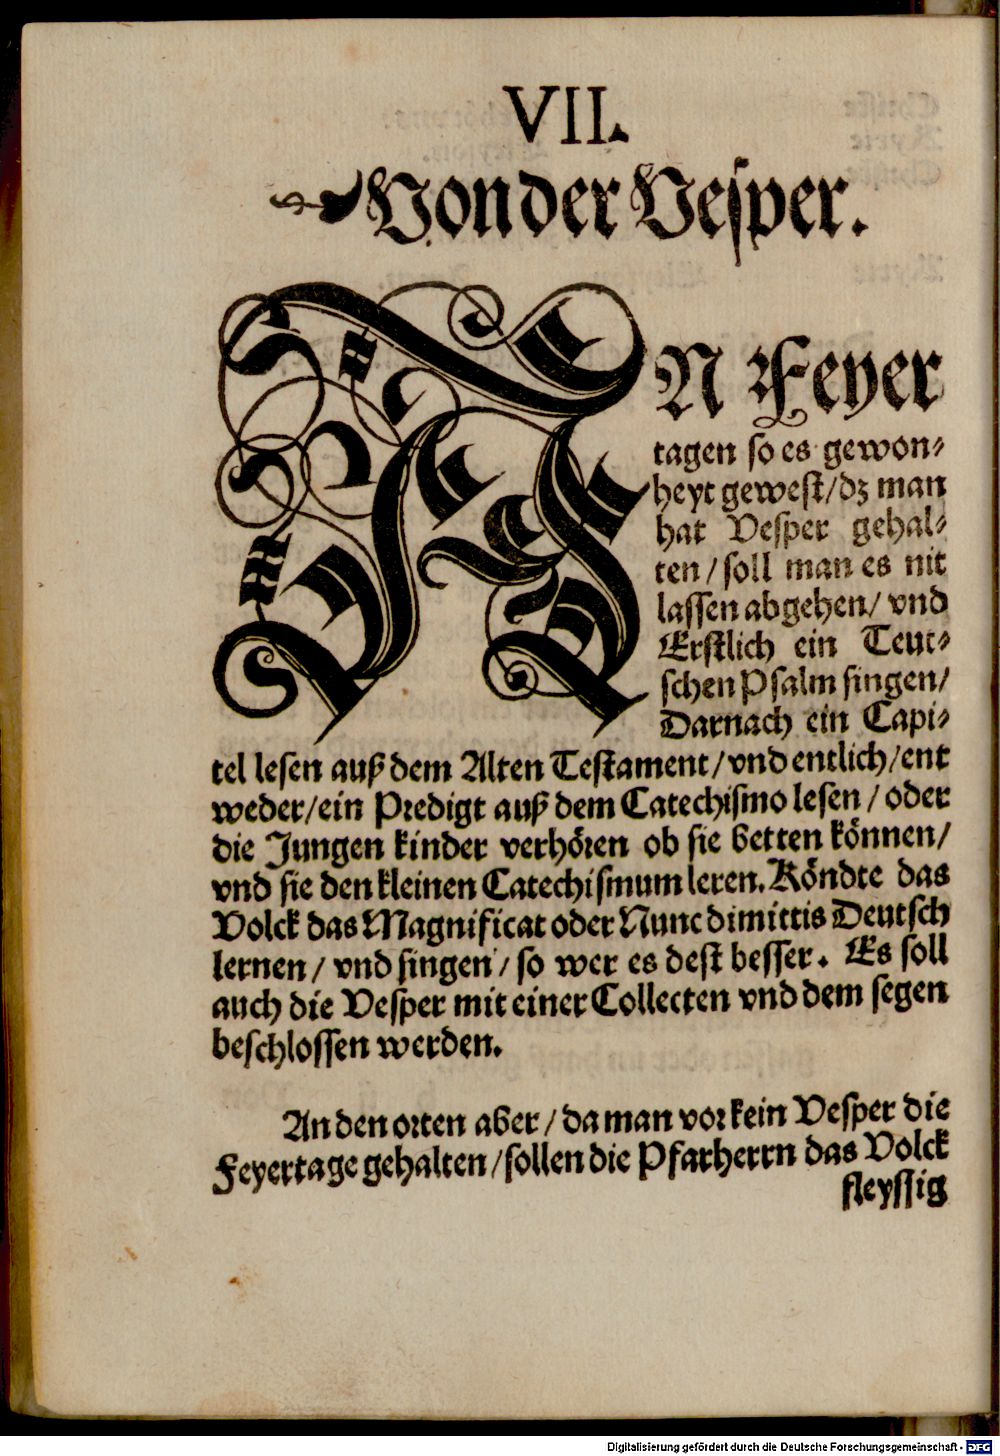 VII.
Von der Vesper.
AN Feyer
tagen so es gewon⸗
heyt gewest/dz man
hat Vesper gehal⸗
ten/soll man es nit
lassen abgehen/vnd
Erstlich ein Teut⸗
schen Psalm singen/
Darnach ein Capi⸗
tel lesen auß dem Alten Testament/vnd entlich/ent
weder/ein Predigt auß dem Catechismo lesen/oder
die Jungen kinder verhören ob sie betten können/
vnd sie den kleinen Catechismum leren. Köndte das
Volck das Magnificat oder Nunc dimittis Deutsch
lernen/vnd singen/so wer es dest besser. Es soll
auch die Vesper mit einer Collecten vnd dem segen
beschlossen werden.
An den orten aber/da man vor kein Vesper die
Feyertage gehalten/sollen die Pfarherrn das Volck
fleyssig
Digitalisierung gefördert durch die Deutsche Forschungsgemeinschaft - DFG